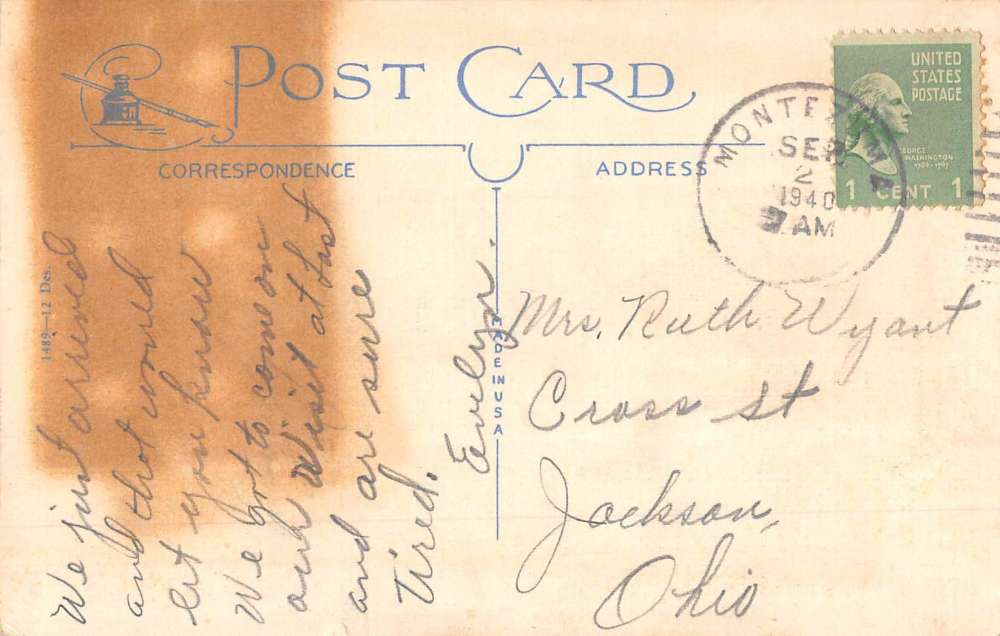 POST CARD
CORRESPONDENCE
ADDRESS
UNITED
STATES
POSTAGE
GEORGE
WASHINGTON
1 CENT 1
SEP
2
1940
AM
1489—12 Des.
MADE IN USA
We just arrived
and thot would
let you know
We got to come on
our visit at last
and are sure
tired.
Evelyn.
Mrs. Ruth Wyant
Cross st
Jackson,
Ohio